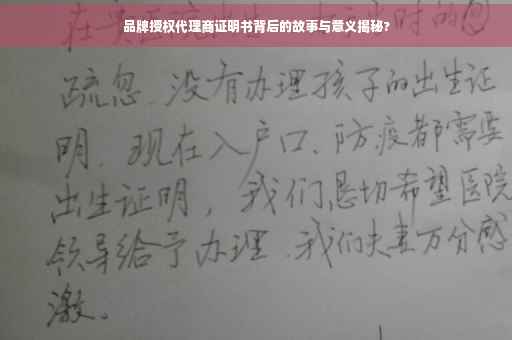 品牌授权代理商证明书背后的故事与意义揭秘?
时的
疏忽、没有办理孩子的出生证
明、现在入户口、防疫都需要
出生证明，我们恳切希望医院
领导给予办理、我们夫妻万分感
激。